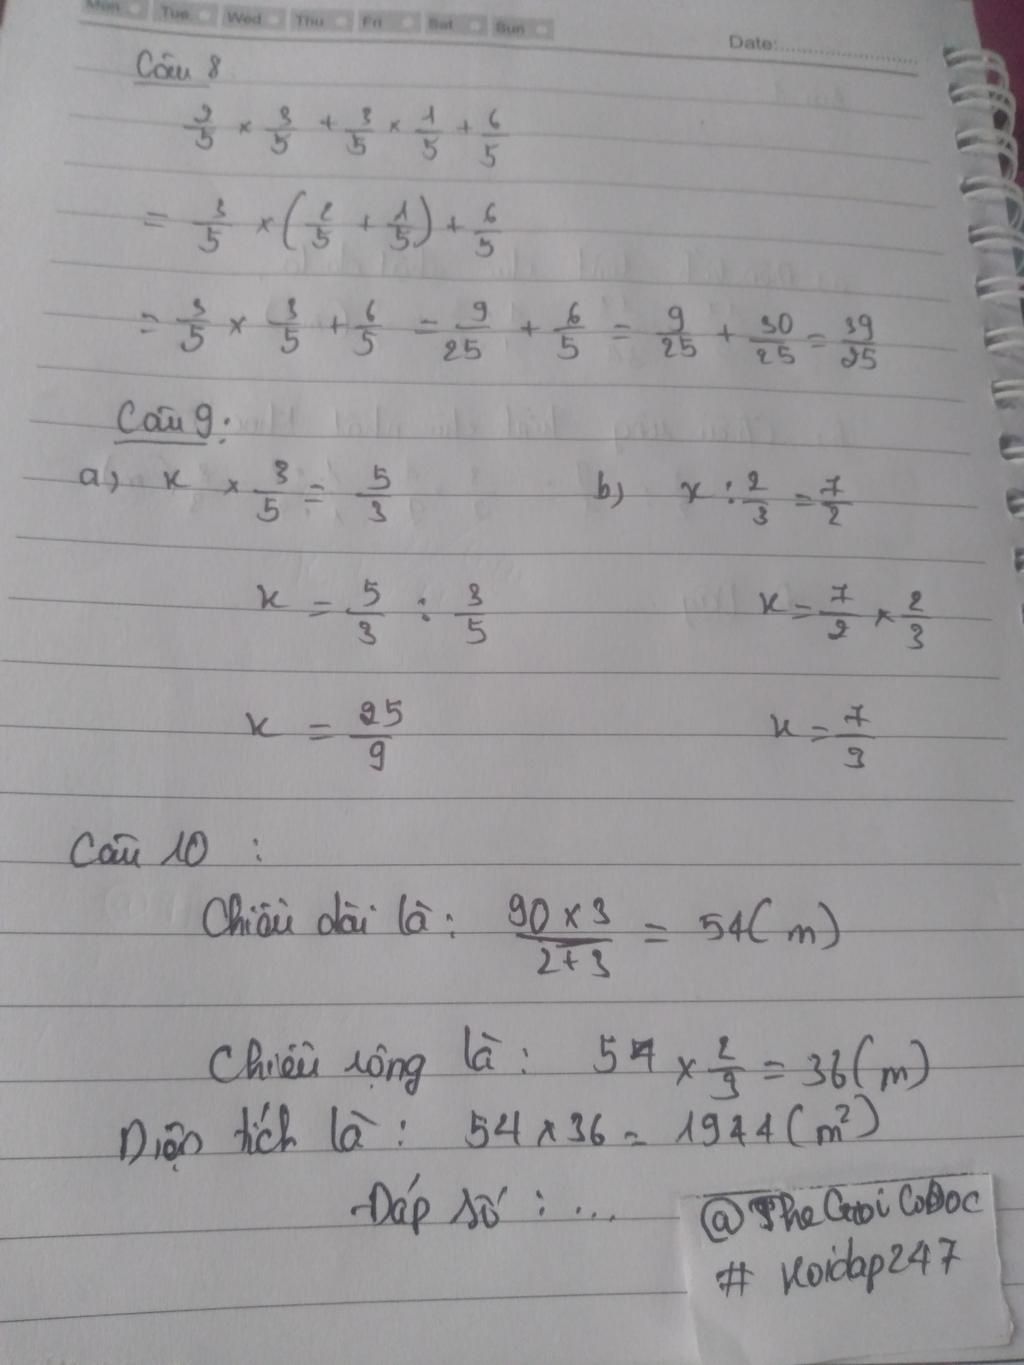 Mon Tue Wed Thu Fri Sat Sun
Date:
Câu 8
2/5 × 3/5 + 3/5 × 1/5 + 6/5
= 3/5 × (2/5 + 1/5) + 6/5
= 3/5 × 3/5 + 6/5 = 9/25 + 6/5 = 9/25 + 30/25 = 39/25
Câu 9:
a) x × 3/5 = 5/3 b) x : 2/3 = 7/2
x = 5/3 : 3/5 x = 7/2 × 2/3
x = 25/9 x = 7/3
Câu 10 :
Chiều dài là: 90 × 3 / 2 + 3 = 54 (m)
Chiều rộng là : 54 × 2/3 = 36 (m)
Diện tích là : 54 × 36 = 1944 (m²)
Đáp số : ...
# Hoidap247